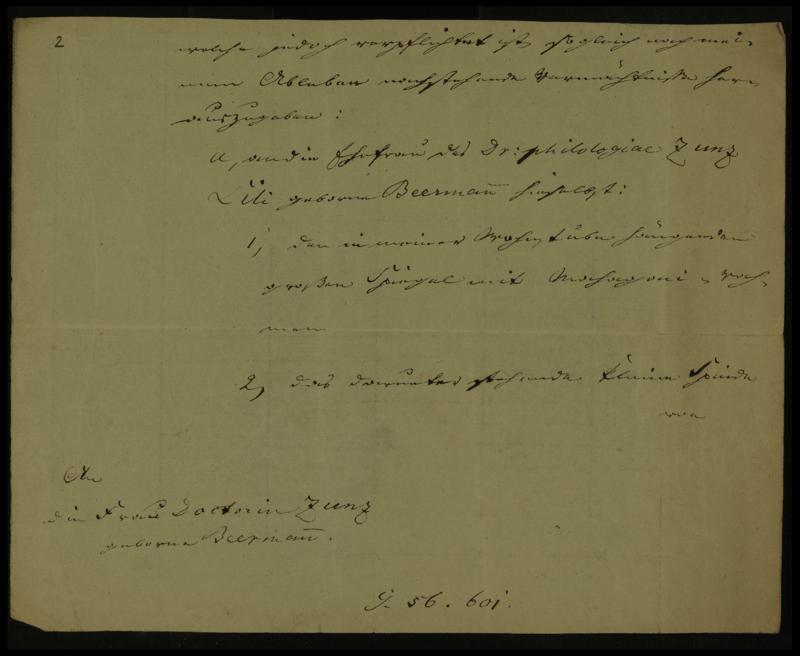 2
welche jedoch verpflichtet ist, sogleich nach mei-
nem Ableben nachstehende Vermächtnisse her-
auszugeben:
a, an die Ehefrau des Dr: philologiae Zunz
Lili geborne Beermañ hieselbst:
1, den in meiner Wohnstube hängenden
großen Spiegel mit Mahagoni-Rah-
men
2, das darunter stehende kleine Spinde
von
An
die Frau Doctorin Zunz
geborne Beermañ.
56. 601.